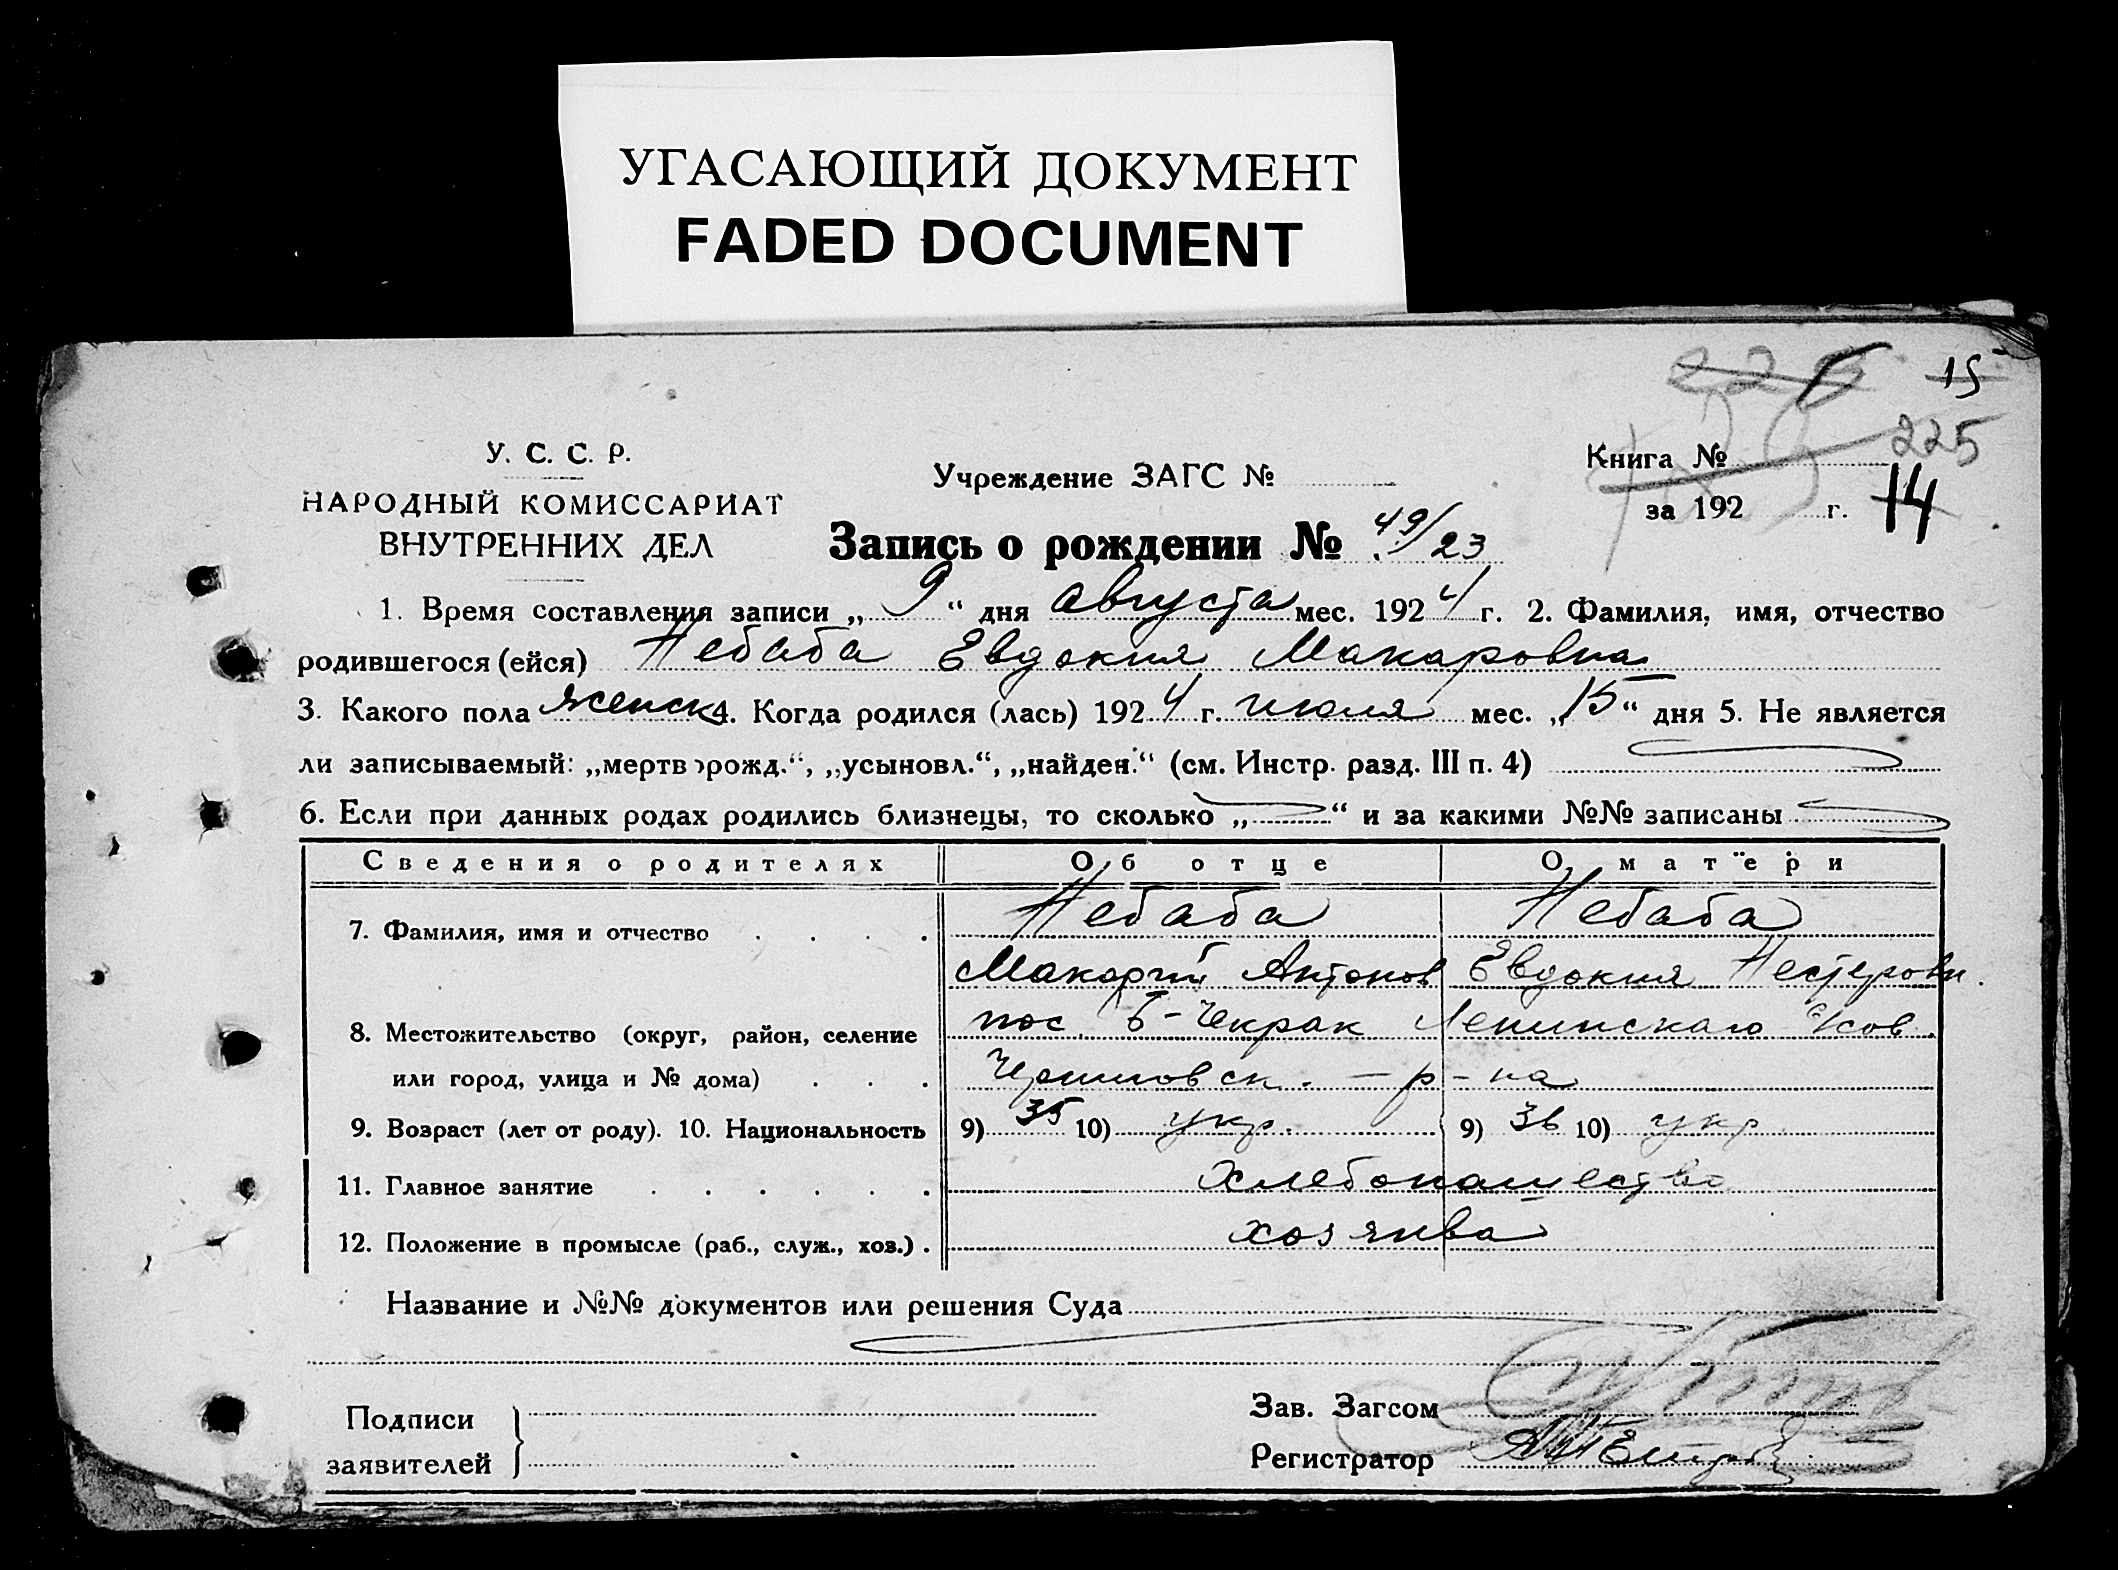 УГАСАЮЩИЙ ДОКУМЕНТ
FADED DOCUMENT
15
225
У. С. С. Р.
НАРОДНЫЙ КОМИССАРИАТ
ВНУТРЕННИХ ДЕЛ
Учреждение ЗАГС №
Книга №
за 192 г. 14
Запись о рождении № 49/23
1. Время составления записи „ 9 “ дня Августа мес. 1924 г. 2. Фамилия, имя, отчество
родившегося (ейся) Небаба Евдокия Макаровна
3. Какого пола женск 4. Когда родился (лась) 1924 г. июля мес. „15“ дня 5. Не является
ли записываемый: „мертворожд.“, „усыновл.“, „найден.“ (см. Инстр. разд. III п. 4)
6. Если при данных родах родились близнецы, то сколько „ “ и за какими №№ записаны
Сведения о родителях Об отце О матери
7. Фамилия, имя и отчество Небаба Небаба
Макарий Антонов Евдокия Нестеровн.
8. Местожительство (округ, район, селение пос. Б-Чекрак Ленинскаго
или город, улица и № дома) р-на
9. Возраст (лет от роду). 10. Национальность 9) 35 10) укр. 9) 36 10) укр
11. Главное занятие хлебопашество
12. Положение в промысле (раб., служ., хоз.) хозяива
Название и №№ документов или решения Суда
Подписи
заявителей
Зав. Загсом
Регистратор